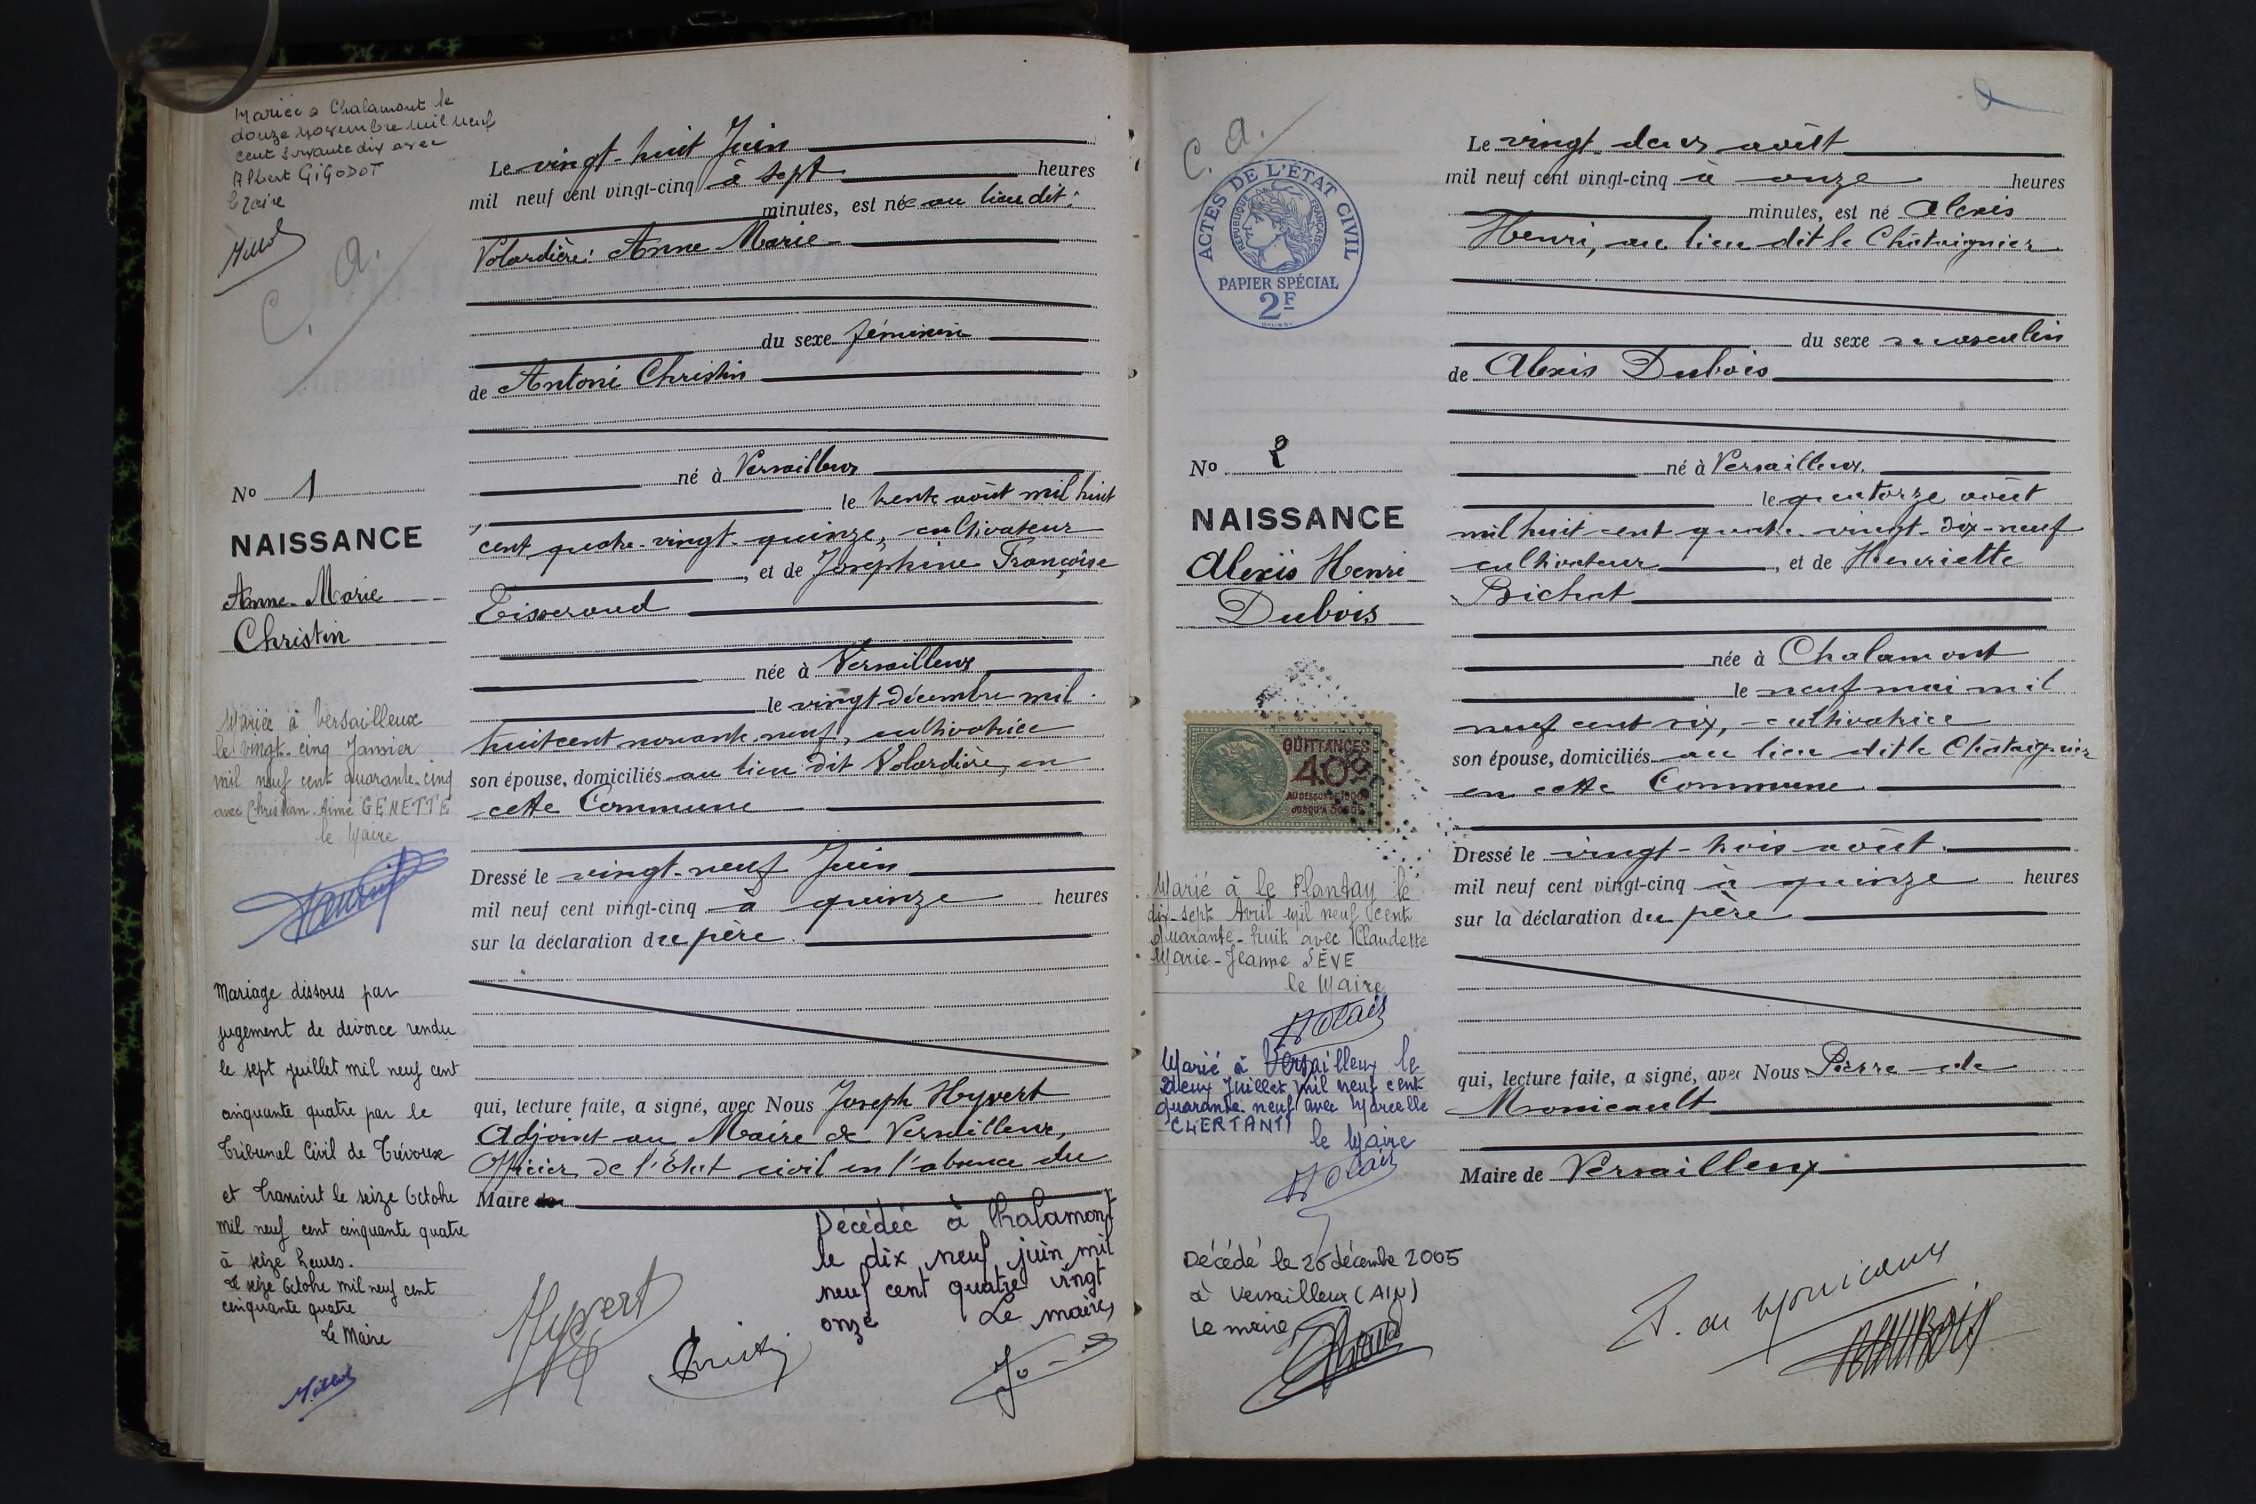 Mariée à Chalamont le
douze novembre mil neuf
cent soixante dix avec
Albert GIGODOT
le Maire
C. a.
No 1
NAISSANCE
Anne-Marie
Christin
Mariée à Versailleux
le vingt-cinq Janvier
mil neuf cent quarante-cinq
avec Christian Aimé GENETTE
le Maire
Mariage dissous par
jugement de divorce rendu
le sept juillet mil neuf cent
cinquante quatre par le
Tribunal Civil de Trévoux
et transcrit le seize Octobre
mil neuf cent cinquante quatre
à seize heures.
Le seize Octobre mil neuf cent
cinquante quatre
Le Maire
Le vingt-huit Juin
mil neuf cent vingt-cinq à sept heures
minutes, est née au lieu dit:
Volardière: Anne-Marie
du sexe féminin
de Antoni Christin
né à Versailleux
le trente août mil huit
cent quatre-vingt-quinze, cultivateur
, et de Joséphine Françoise
Tisserand
née à Versailleux
le vingt décembre mil
huit cent nonante neuf, cultivatrice
son épouse, domiciliés au lieu dit Volardière, en
cette Commune
Dressé le vingt-neuf Juin
mil neuf cent vingt-cinq à quinze heures
sur la déclaration du père.
qui, lecture faite, a signé, avec Nous Joseph Hyvert
Adjoint au Maire de Versailleux,
Officier de l'Etat civil en l'absence du
Maire
Décédée à Chalamont
le dix neuf juin mil
neuf cent quatre vingt
onze Le maire,
Hyvert
Christin
C. a.
ACTES DE L'ÉTAT CIVIL
RÉPUBLIQUE FRANÇAISE
PAPIER SPÉCIAL
2F
No 2
NAISSANCE
Alexis Henri
Dubois
QUITTANCES
40c
Marié à Le Plantay le
dix-sept Avril mil neuf cent
quarante-huit avec Claudette
Marie-Jeanne SÈVE
le Maire
Marié à Versailleux le
deux Juillet mil neuf cent
quarante-neuf avec Marcelle
CLERTANT
le Maire
Décédé le 26 décembre 2005
à Versailleux (AIN)
Le maire
Le vingt-deux août
mil neuf cent vingt-cinq à onze heures
minutes, est né Alexis
Henri, au lieu dit le Châtaignier
du sexe masculin
de Alexis Dubois
né à Versailleux
le quatorze août
mil huit cent quatre-vingt-dix-neuf
cultivateur, et de Henriette
Bichat
née à Chalamont
le neuf mai mil
neuf cent six, cultivatrice
son épouse, domiciliés au lieu dit le Châtaignier
en cette Commune.
Dressé le vingt-trois août
mil neuf cent vingt-cinq à quinze heures
sur la déclaration du père
qui, lecture faite, a signé, avec Nous Pierre de
Monicault
Maire de Versailleux
P. de Monicault
ADUBOIS